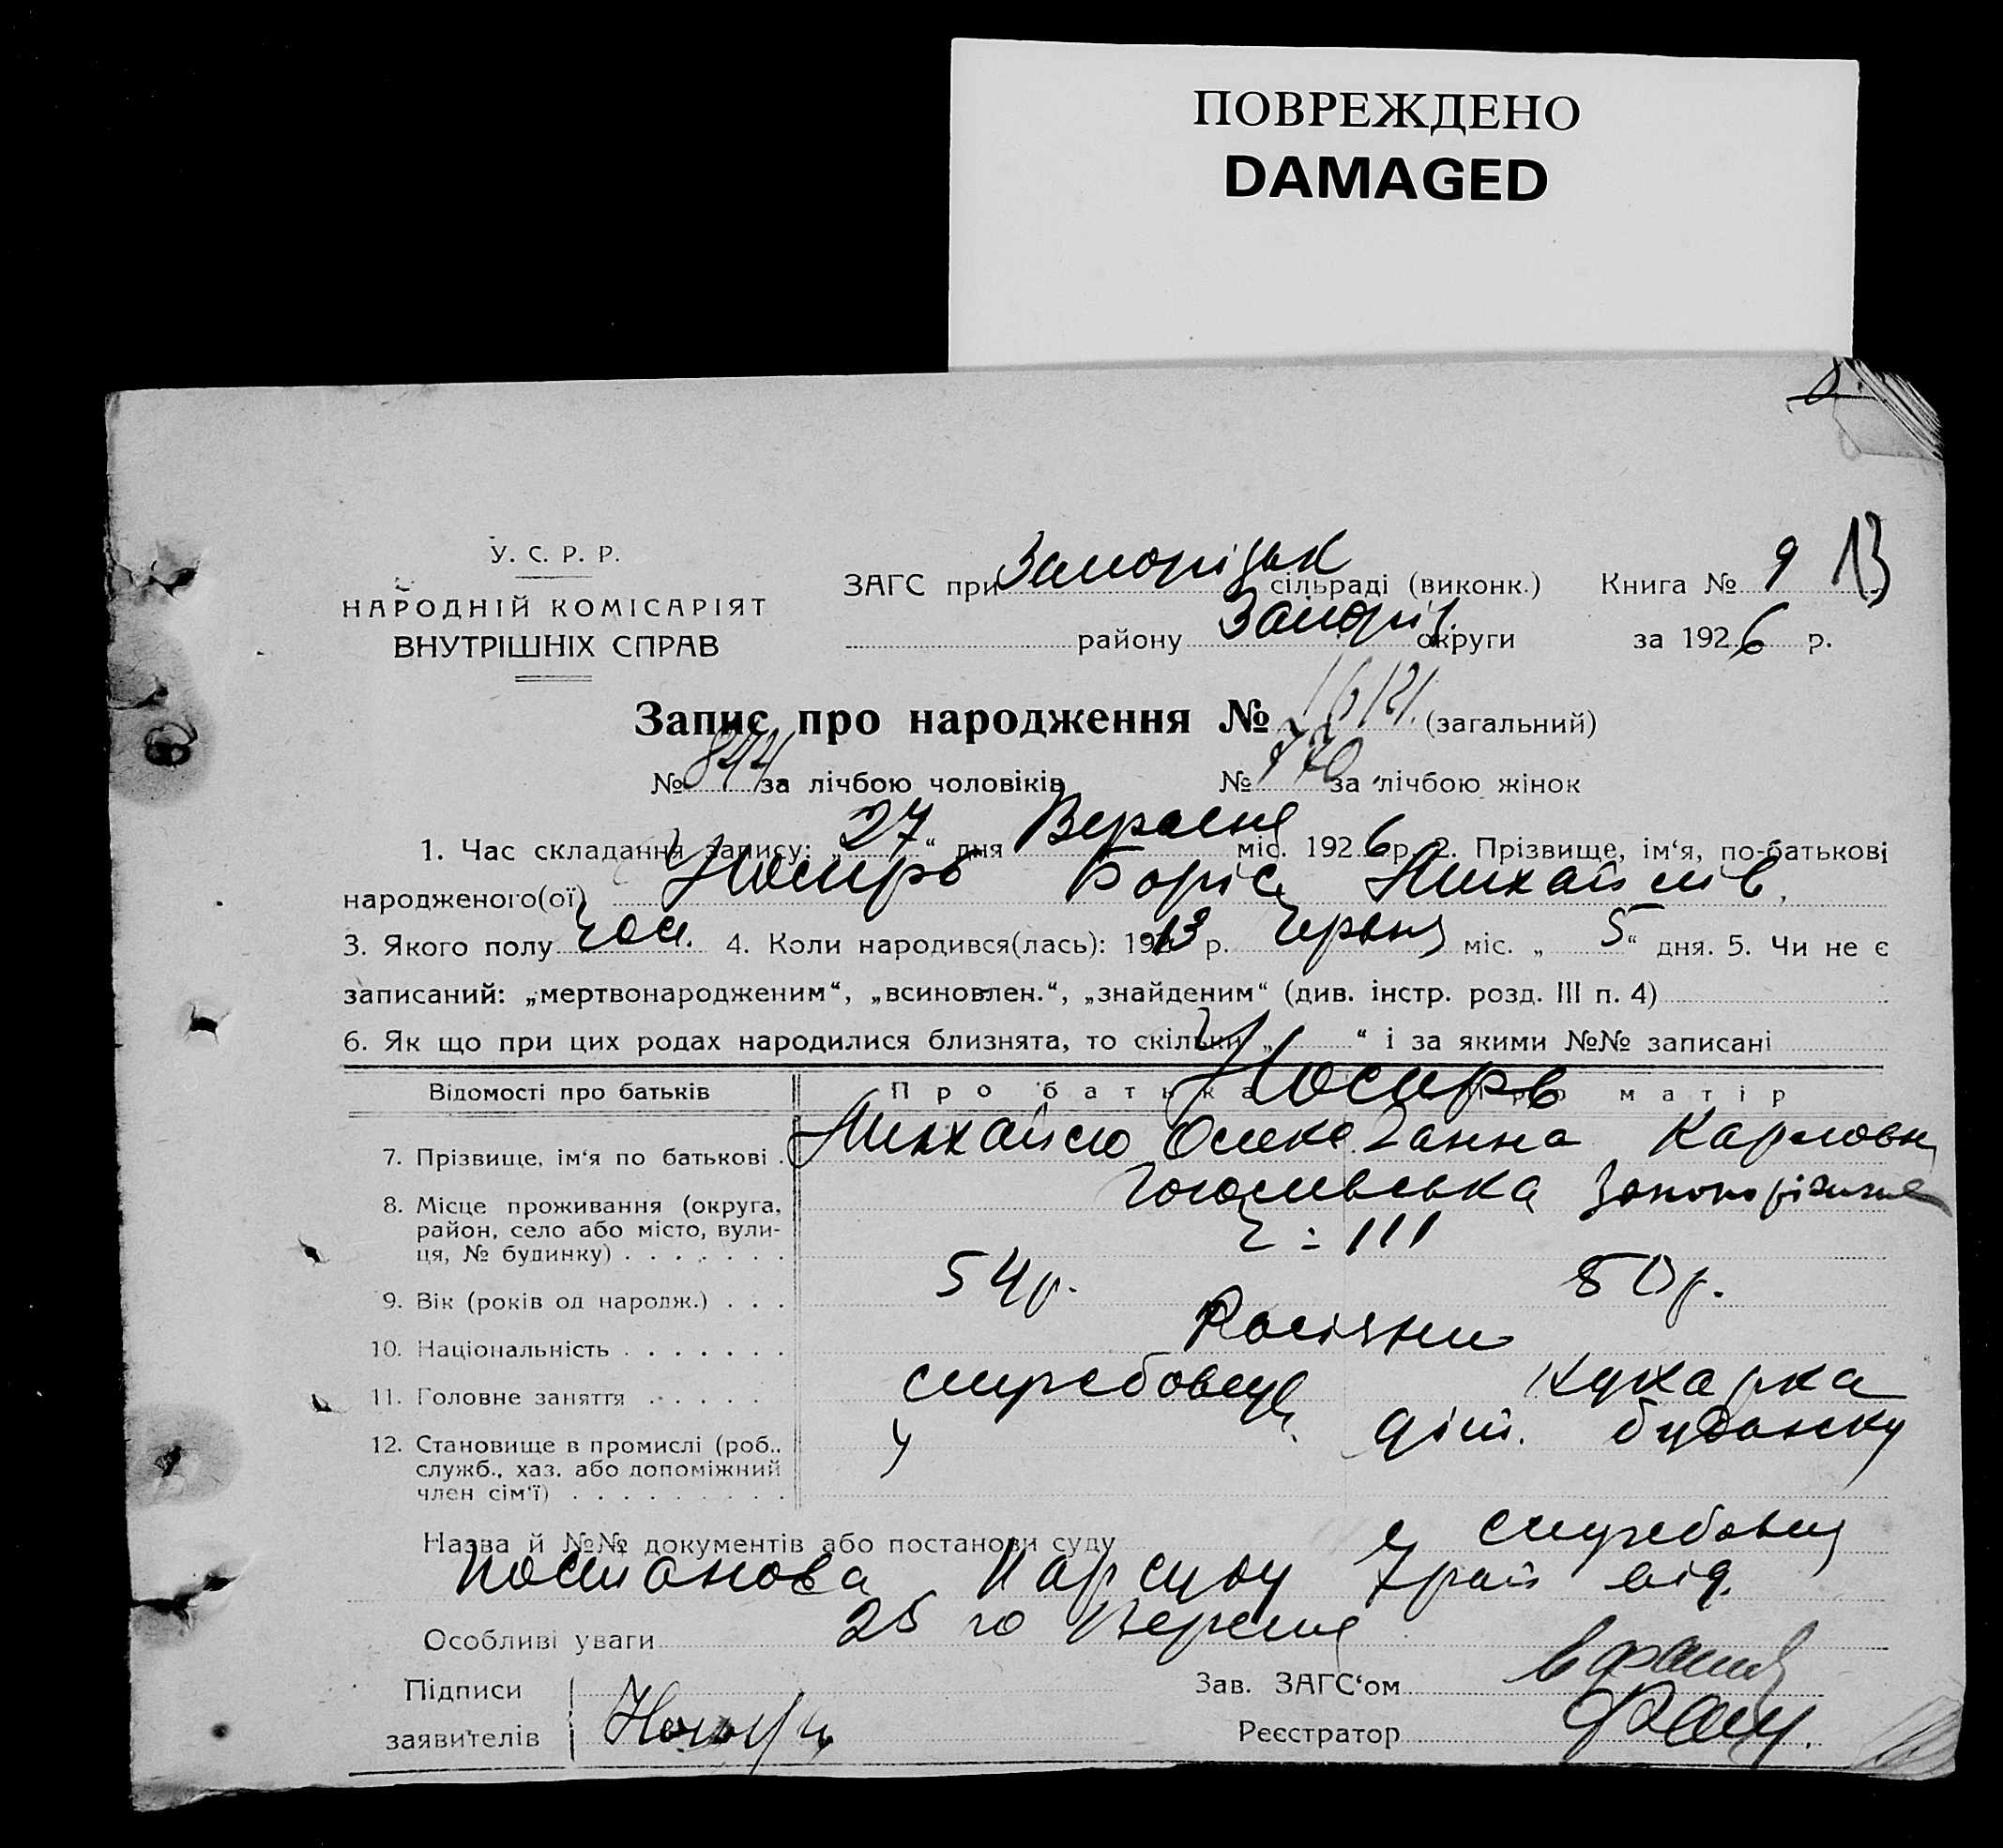 ПОВРЕЖДЕНО
DAMAGED
У. С. Р. Р.
НАРОДНІЙ КОМІСАРІЯТ
ВНУТРІШНІХ СПРАВ
ЗАГС при Запорізьк сільраді (виконк.) Книга № 9 13
району Запоріз. округи за 1926 р.
Запис про народження № (загальний)
№ 844 за лічбою чоловіків № 770 за лічбою жінок
1. Час складання запису: „27“ дня Вересня міс. 1926 р. 2. Прізвище, ім‘я, по-батькові
народженого(ої) Носирь Боріс Михайлів.
3. Якого полу чол. 4. Коли народився(лась): 1913 р. Червня міс. „5“ дня. 5. Чи не є
записаний: „мертвонародженим“, „всиновлен.“, „знайденим“ (див. інстр. розд. III п. 4)
6. Як що при цих родах народилися близнята, то скільки „ “ і за якими №№ записані
Відомості про батьків Про батька Про матір
Носирь
7. Прізвище, ім‘я по батькові . Михайло Олекс. Ганна Карловн
8. Місце проживання (округа, район, село або місто, вули- ця, № будинку) . . . . . . . Гоголивська Запоріжжя
111
9. Вік (років од народж.) . . . 54 р. 50 р.
10. Національність . . . . . . . Росіяни
11. Головне заняття . . . . . служебовец Кухарка
12. Становище в промислі (роб., служб., хаз. або допоміжний член сім‘ї) . . . . . . . . . дит. будинку
служебовец
Назва й №№ документів або постанови суду
Постанова Нарсуду 7 рай від.
Особливі уваги 25 го Вересня
Підписи Зав. ЗАГС‘ом
заявителів Реєстратор